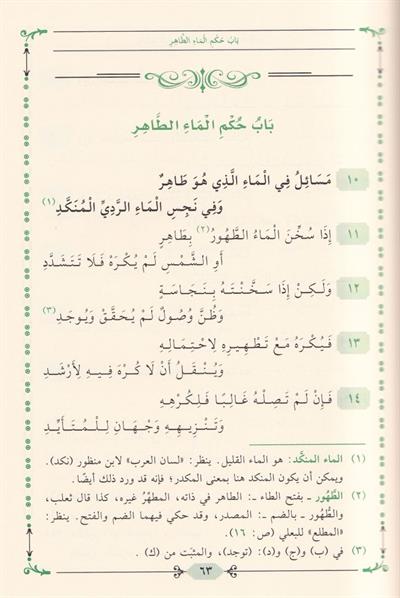 بَابُ حُكْمِ الْمَاءِ الطَّاهِرِ
بَابُ حُكْمِ الْمَاءِ الطَّاهِرِ
١٠ مَسَائِلُ فِي الْمَاءِ الَّذِي هُوَ طَاهِرٌ
وَفِي نَجِسِ الْمَاءِ الرَّدِيِّ الْمُنَكَّدِ(١)
١١ إِذَا سُخِّنَ الْمَاءُ الطَّهُورُ(٢) بِطَاهِرٍ
أَوِ الشَّمْسِ لَمْ يُكْرَهْ فَلَا تَتَشَدَّدِ
١٢ وَلَكِنْ إِذَا سَخَّنْتَهُ بِنَجَاسَةٍ
وَظُنَّ وُصُولٌ لَمْ يُحَقَّقْ وَيُوجَدِ(٣)
١٣ فَيُكْرَهُ مَعْ تَطْهِيرِهِ لِاحْتِمَالِهِ
وَيُنْقَلُ أَنْ لَا كُرْهَ فِيهِ لِأَرْشَدِ
١٤ فَإِنْ لَمْ تَصِلْهُ غَالِبًا فَلِكُرْهِهِ
وَتَنْزِيهِهِ وَجْهَانِ لِلْمُتَأَيِّدِ
(١) الماء المنكَّد: هو الماء القليل. ينظر: «لسان العرب» لابن منظور (نكد).
ويمكن أن يكون المنكد هنا بمعنى المكدر؛ فإنه قد ورد ذلك أيضًا.
(٢) الطَّهُور ـ بفتح الطاء ـ: الطاهر في ذاته، المطهِّرُ غيره، كذا قال ثعلب،
والطُّهُور ـ بالضم ـ: المصدر، وقد حكي فيهما الضم والفتح. ينظر:
«المطلع» للبعلي (ص: ١٦).
(٣) في (ب) و(ج) و(د): (توجد)، والمثبَت من (ك).
٦٣